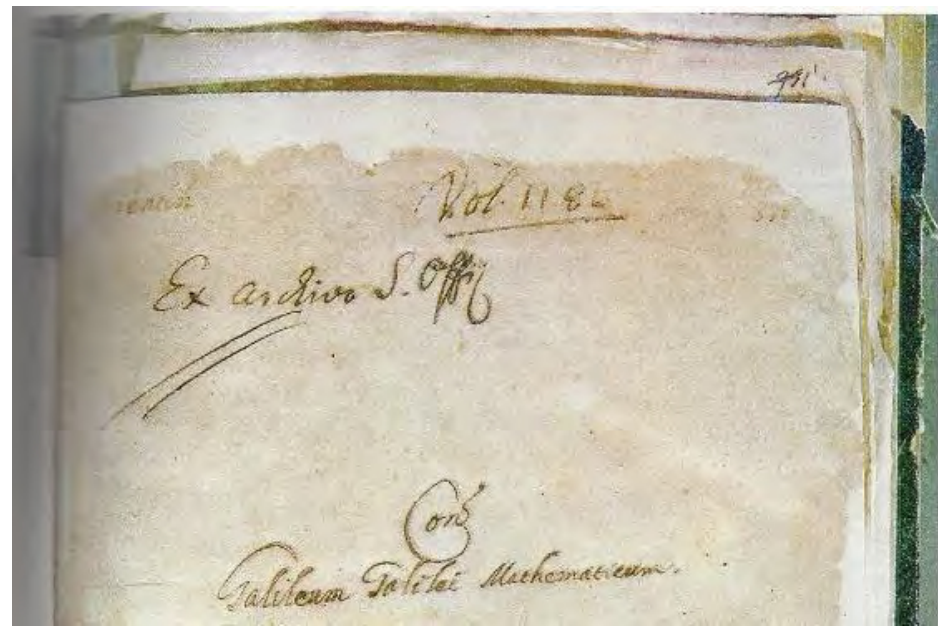 Vol.
Ex archivo S. Offij
Con
Galileum Galilei Mathematicum.